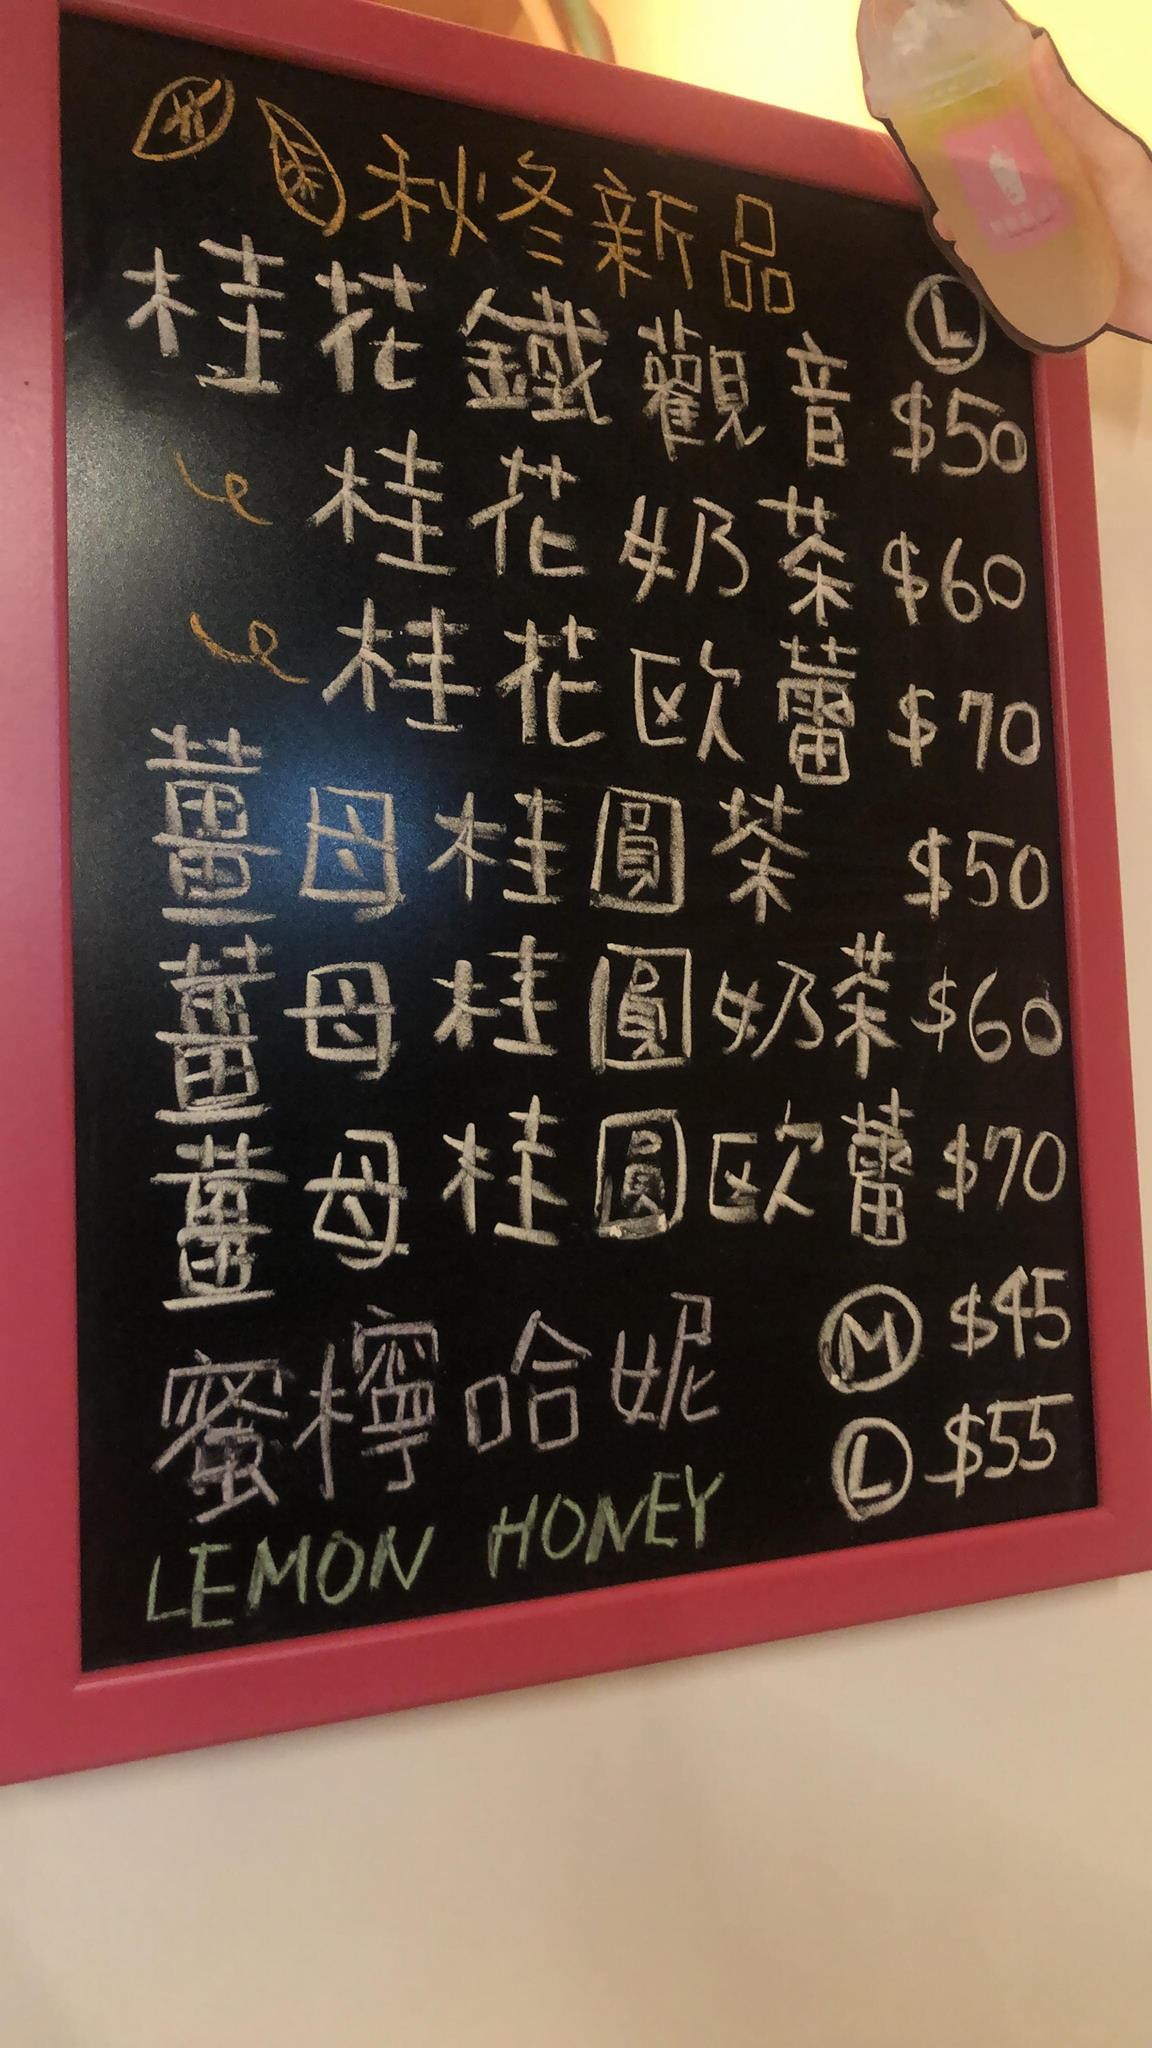 秋冬新品
Ⓛ
桂花鐵觀音 $50
桂花奶茶 $60
桂花欧蕾 $70
薑母桂圓茶 $50
薑母桂圓奶茶 $60
薑母桂圓欧蕾 $70
蜜檸哈妮 Ⓜ $45
Ⓛ $55
LEMON HONEY